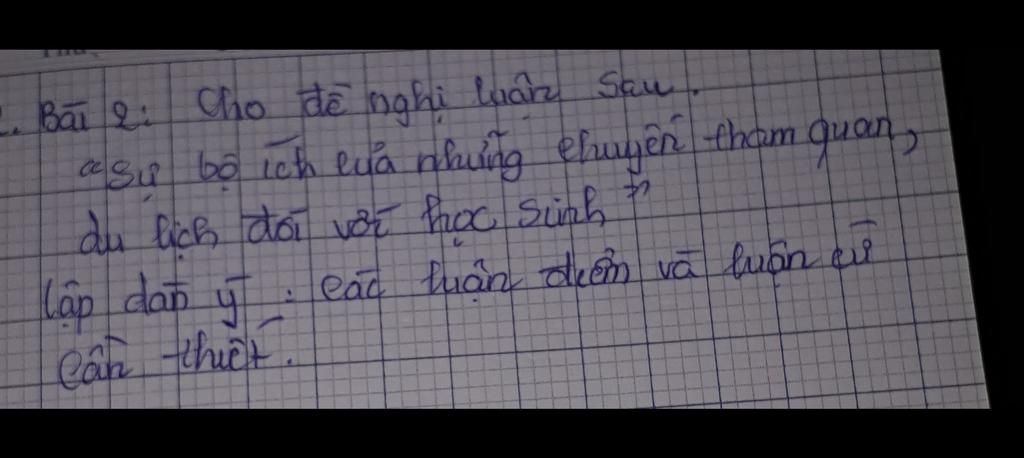 Bài 2: Cho đề nghị luận sau.
"Sự bổ ích của những chuyến tham quan,
du lịch đối với học sinh"
Lập dàn ý: các luận điểm và luận cứ
cần thiết.